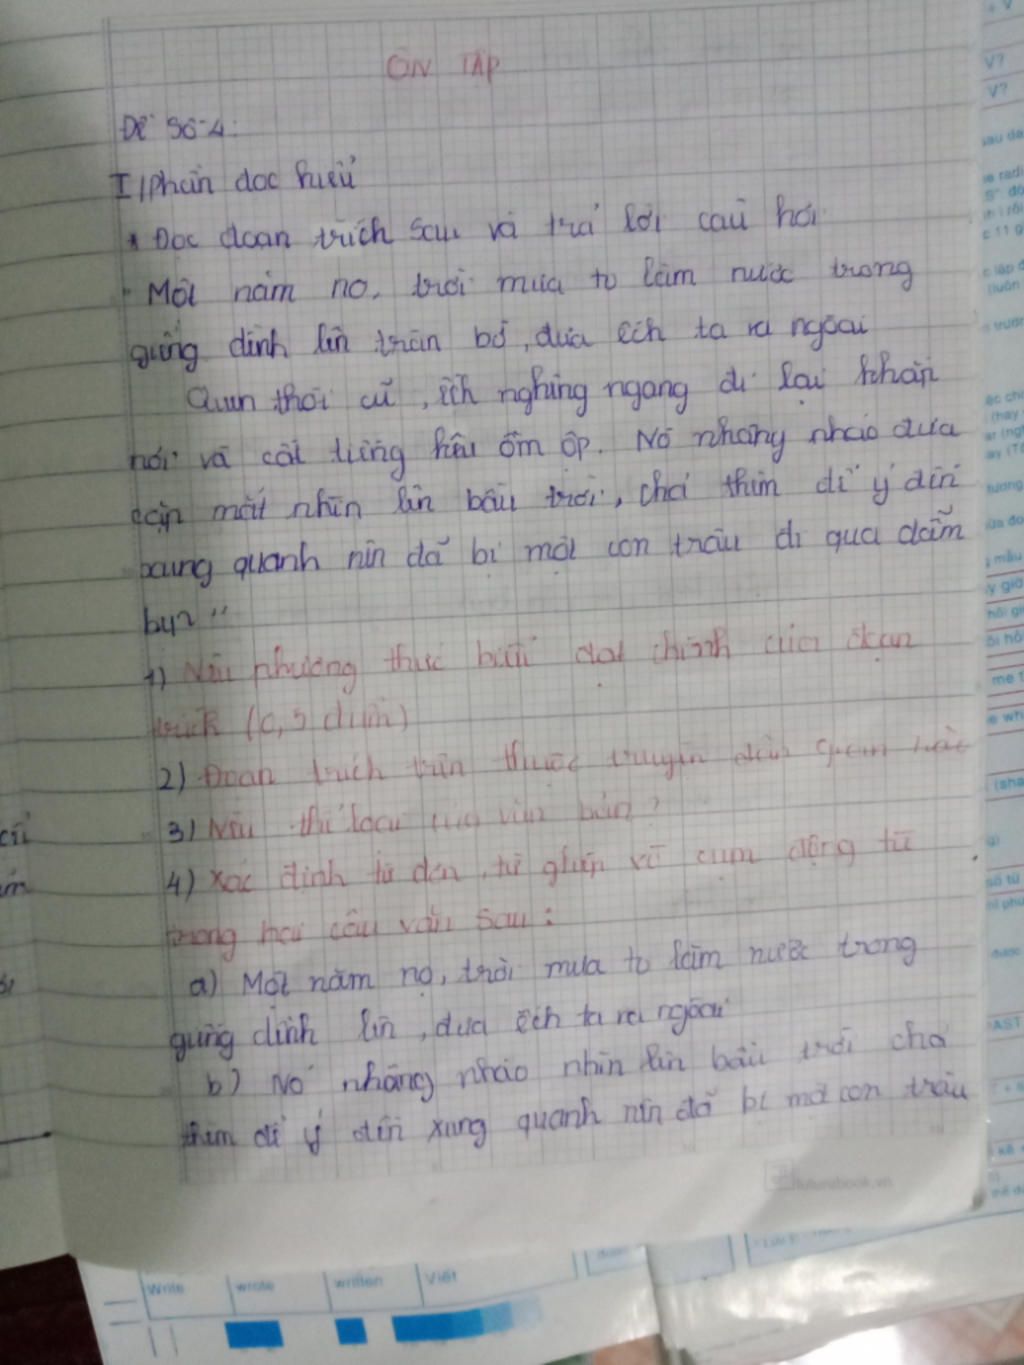 ÔN TẬP
Đề số 4:
I/ Phần đọc hiểu
* Đọc đoạn trích sau và trả lời câu hỏi
" Một năm nọ, trời mưa to làm nước trong
giếng dềnh lên tràn bờ, đưa ếch ta ra ngoài
Quen thói cũ, ếch nghênh ngang đi lại khắp
nơi và cất tiếng kêu ồm ộp. Nó nhâng nháo đưa
cặp mắt nhìn lên bầu trời, chả thèm để ý đến
xung quanh nên đã bị một con trâu đi qua dẫm
bẹp "
1) Nêu phương thức biểu đạt chính của đoạn
trích (0,5 điểm)
2) Đoạn trích trên thuộc truyện dân gian nào
3) Nêu thể loại của văn bản?
4) Xác định từ đơn, từ ghép và cụm động từ
trong hai câu văn sau:
a) Một năm nọ, trời mưa to làm nước trong
giếng dềnh lên, đưa ếch ta ra ngoài
b) Nó nhâng nháo nhìn lên bầu trời chả
thèm để ý đến xung quanh nên đã bị một con trâu
futurebook.vn
Write wrote written Viết